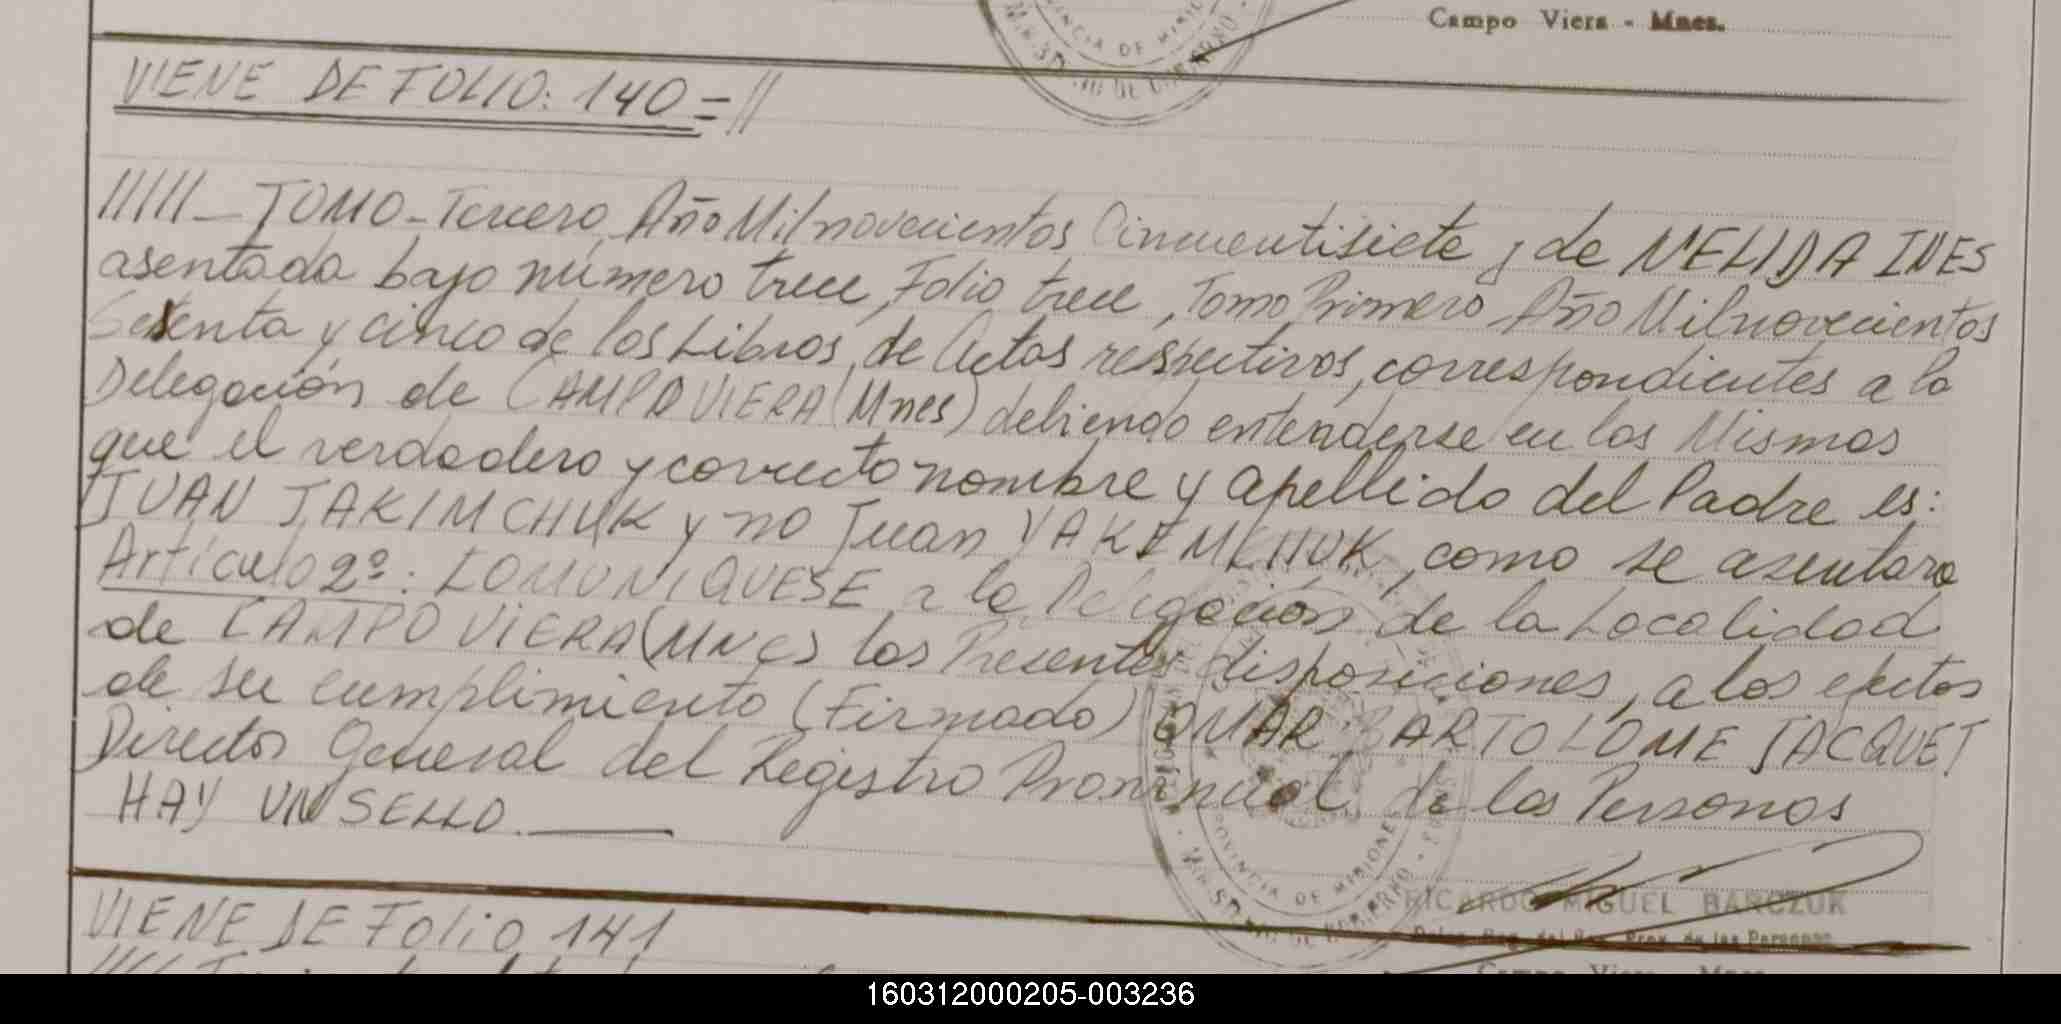 Campo Viera - Mnes.
VIENE DE FOLIO: 140=//
/////_ TOMO-Tercero, Año Milnovecientos Cincuentisiete y de NELIDA INES
asentada bajo número trece, Folio trece, Tomo Primero Año Milnovecientos
Sesenta y cinco de los Libros, de Actas respectivos, correspondientes a la
Delegación de CAMPO VIERA (Mnes) debiendo entenderse en las Mismas
que el verdadero y correcto nombre y apellido del Padre es:
JUAN JAKIMCHUK y no Juan YAKEMCHUK, como se asentara
Artículo 2º: COMUNIQUESE a la Delegación de la Localidad
de CAMPO VIERA (MNes) las Presentes disposiciones, a los efectos
de su cumplimiento (Firmado) OMAR BARTOLOME JACQUET
Director General del Registro Provincial de las Personas
HAY UN SELLO.
PROVINCIA DE MISIONES
RICARDO MIGUEL BARCZUK
VIENE DE Folio 141
160312000205-003236